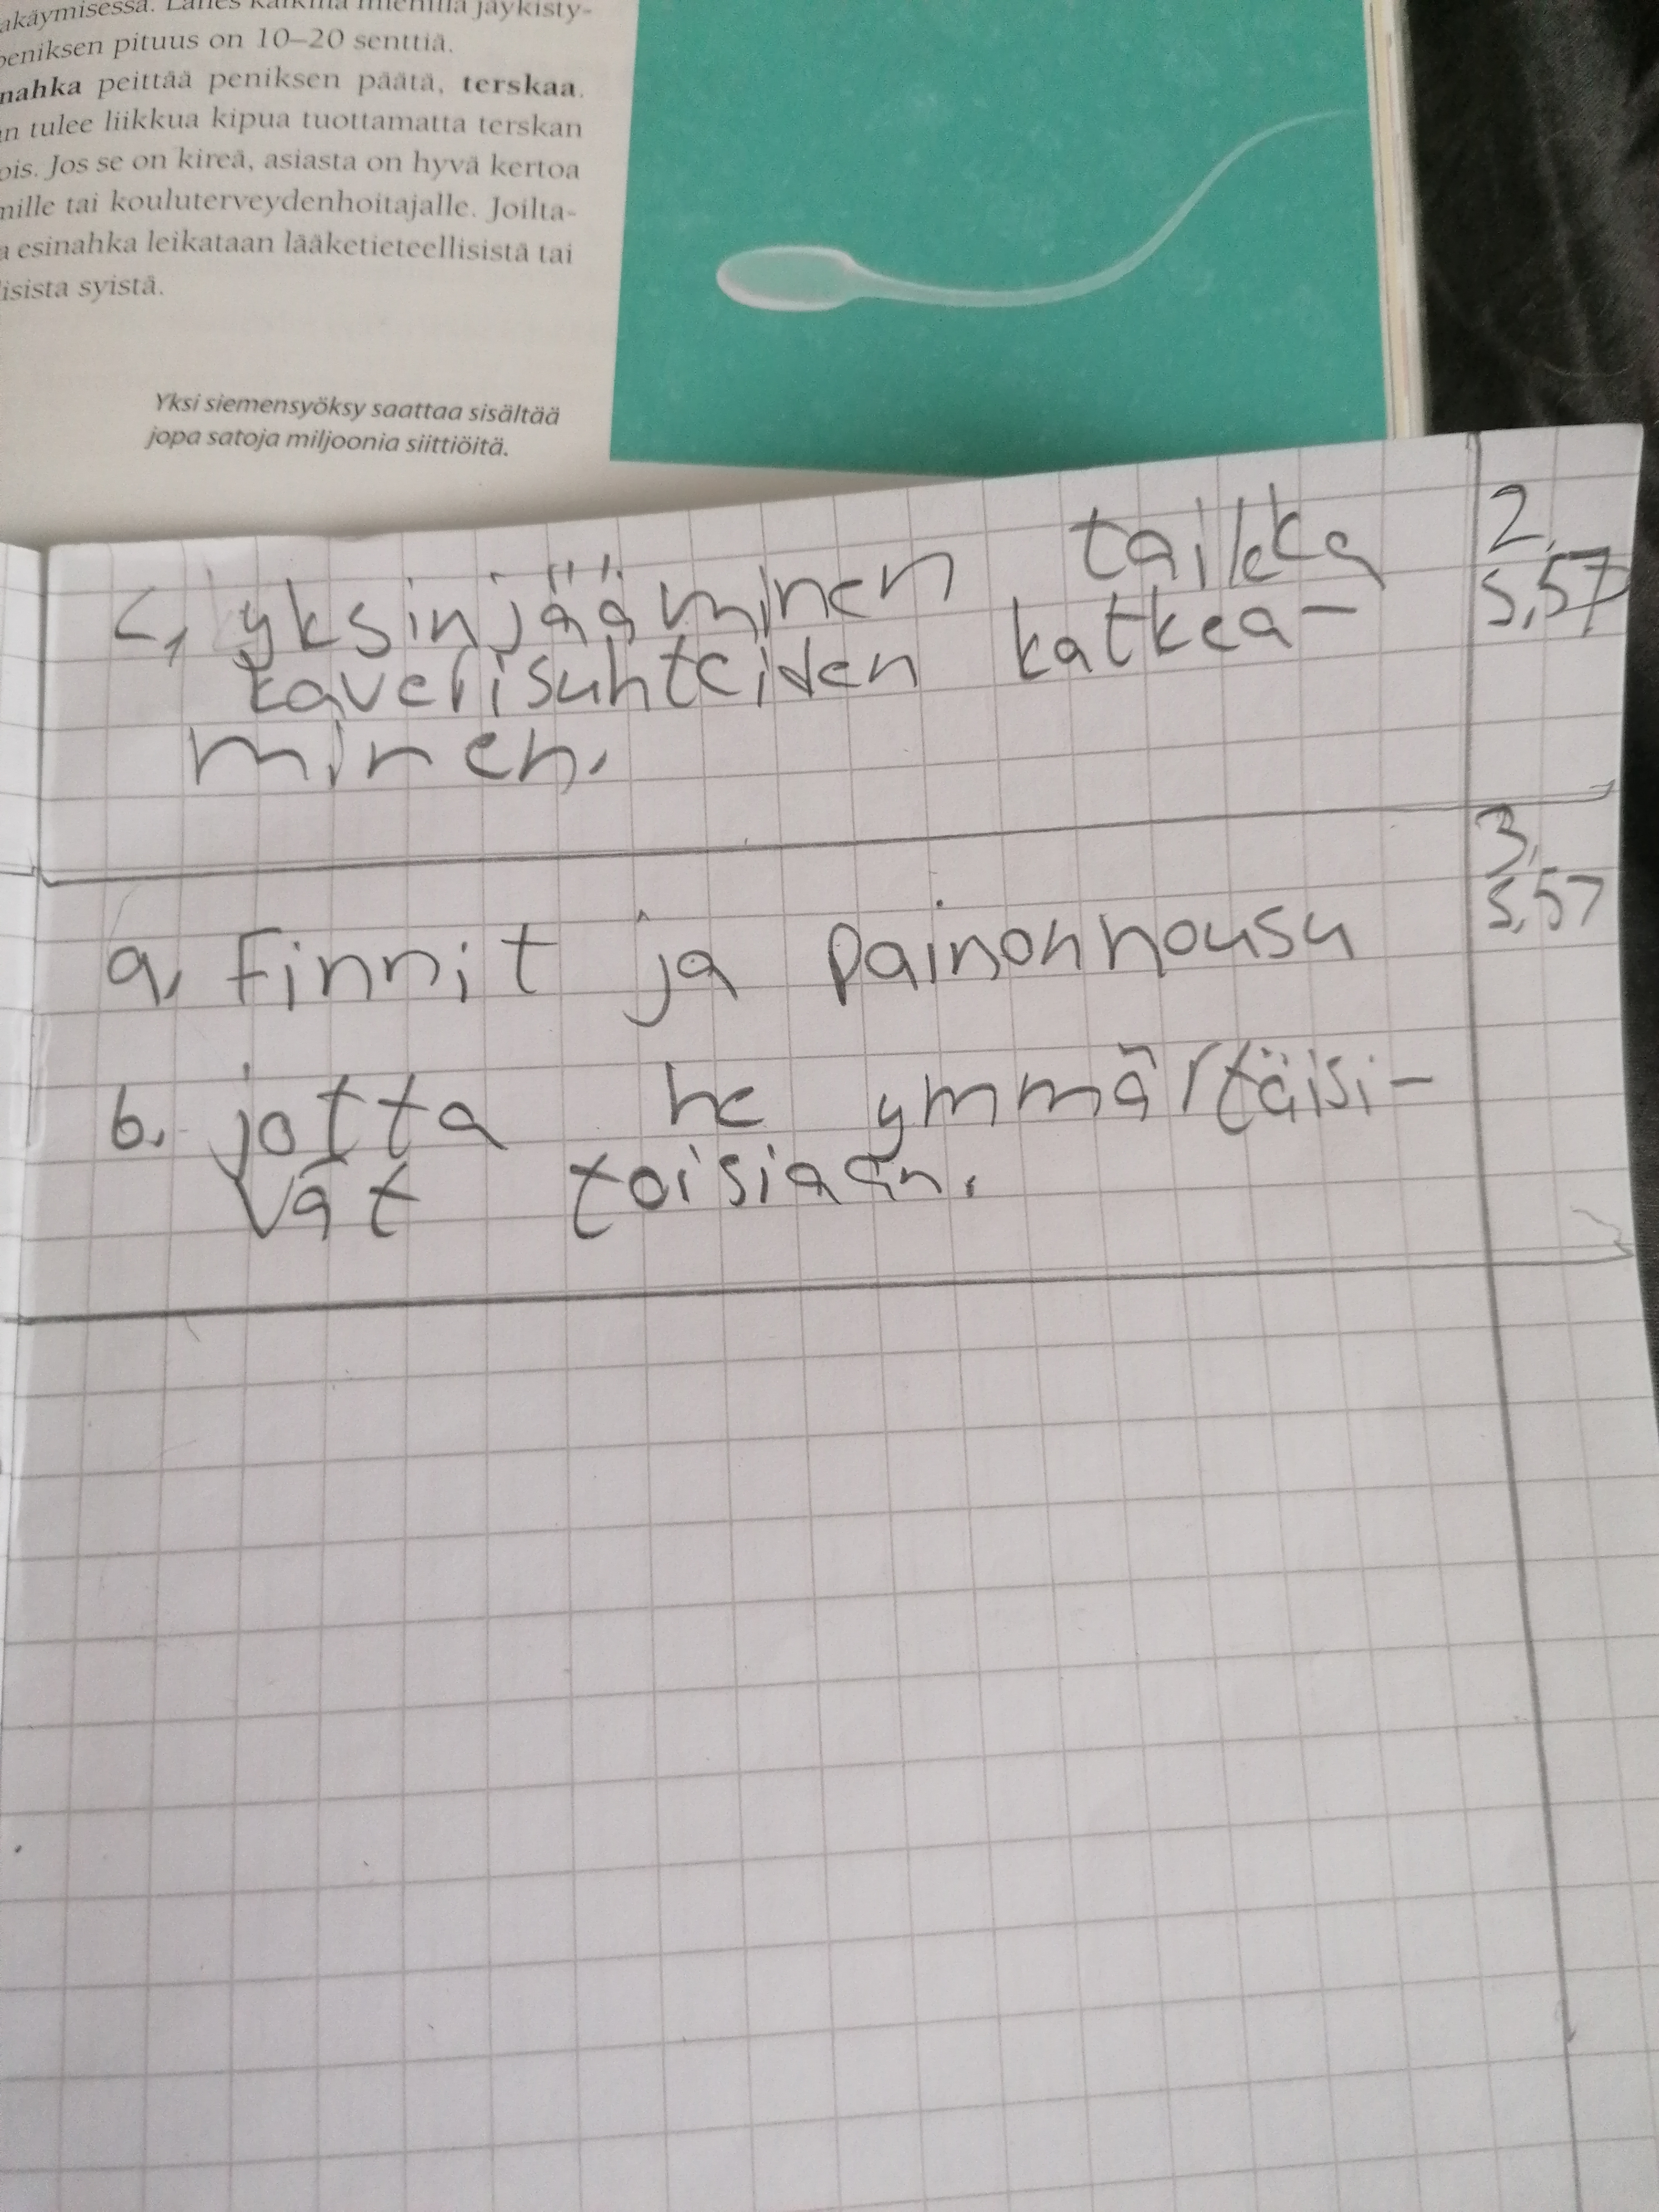 akäymisessä. Lähes kaikilla miehillä jäykisty-
peniksen pituus on 10–20 senttiä.
nahka peittää peniksen päätä, terskaa.
n tulee liikkua kipua tuottamatta terskan
ois. Jos se on kireä, asiasta on hyvä kertoa
mille tai kouluterveydenhoitajalle. Joilta-
a esinahka leikataan lääketieteellisistä tai
lisista syistä.
Yksi siemensyöksy saattaa sisältää
jopa satoja miljoonia siittiöitä.
2.
s,57
c, yksinjääminen taikka
kaverisuhteiden katkea-
minen.
3,
s,57
a, Finnit ja painonnousu
b. jotta he ymmärtäisi-
vät toisiaan.